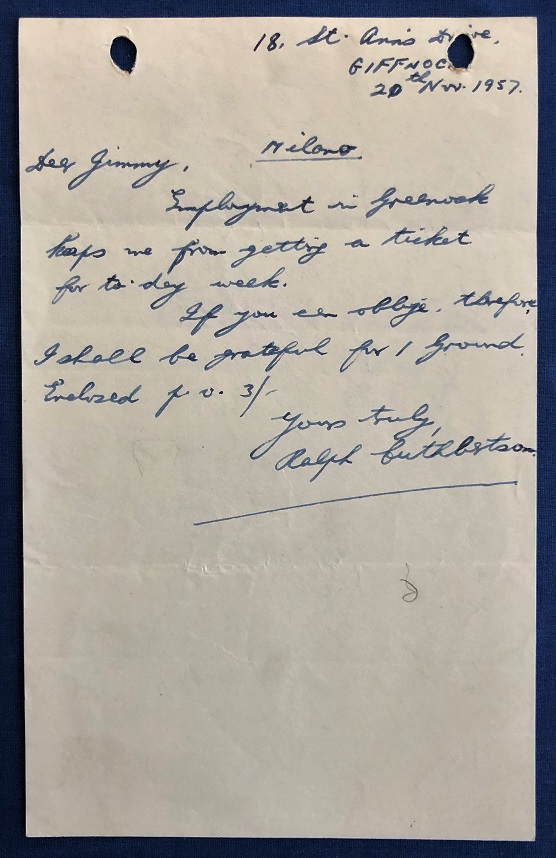 18, St. Ann's Drive,
GIFFNOCK
20th Nov. 1957.
Milano
Dear Jimmy,
Employment in Greenock
keeps me from getting a ticket
for to-day week.
If you can oblige, therefore,
I shall be grateful for 1 Ground.
Enclosed p.o. 3/-
Yours truly,
Ralph Cuthbertson.